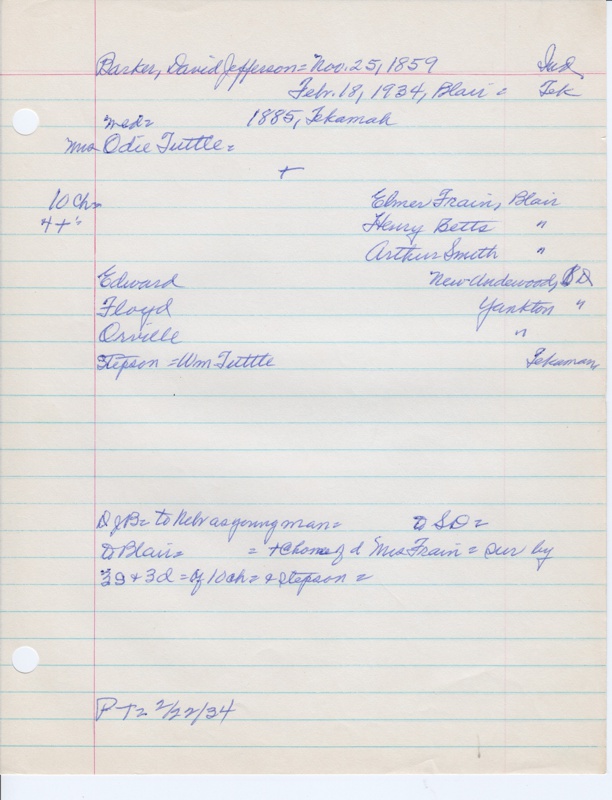 Barker, David Jefferson = Nov. 25, 1859 Ind
Febr. 18, 1934, Blair = Tek
med = 1885, Tekamah
Mrs Odie Tuttle =
+
10 Ch = Elmer Frain, Blair
4 + s Henry Betts "
Arthur Smith "
Edward New Underwood, SD
Floyd Yankton "
Orville "
Stepson = Wm Tuttle Tekamah
DJB = to Nebr as young man = to SD =
to Blair = = + @ home of d Mrs Frain = sur by
3s + 3d = of 10 ch = + stepson =
P T = 2/22/34